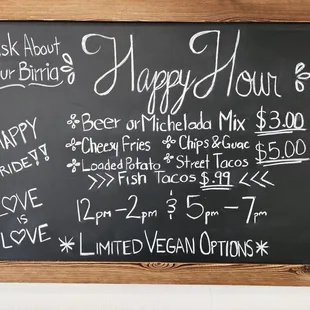 Ask About
Our Birria
Happy Hour
Beer or Michelada Mix $3.00
Cheesy Fries Chips & Guac $5.00
Loaded Potato Street Tacos
>>> Fish Tacos $.99 <<<
12pm - 2pm & 5pm - 7pm
*Limited Vegan Options*
HAPPY
PRIDE!!
LOVE
IS
LOVE